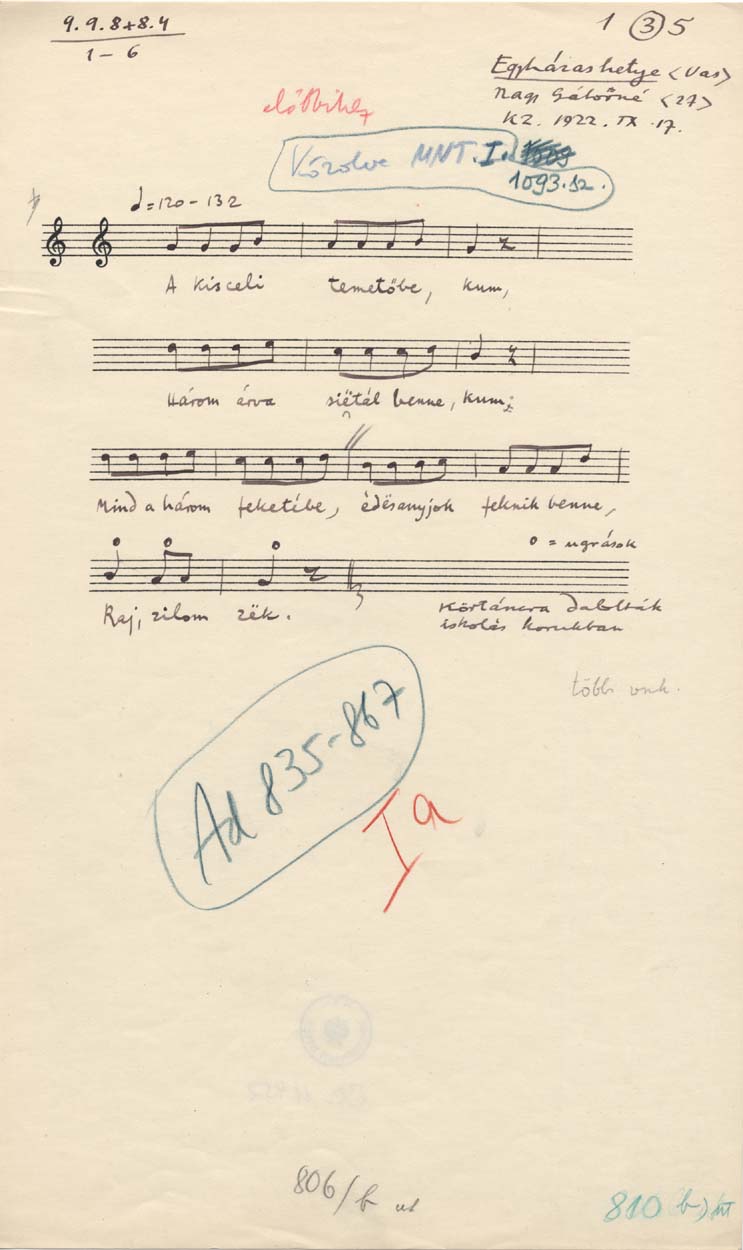 9.9.8+8.4
1 – 6
1 ③ 5
Egyházashetye <Vas>
Nagy Gáborné <27>
KZ. 1922. IX. 17.
előbbihez
Közölve MNT. I.
1093.sz.
♩=120-132
A kisceli temetőbe, kum,
Három árva siëtál benne, kum;
Mind a három feketébe, édësanyjok feknik benne,
o = ugrások
Raj, zilom zëk.
Körtáncra dalolták
iskolás korukban
több vsk.
Ad 835-867
Ia
806/b
810 b)